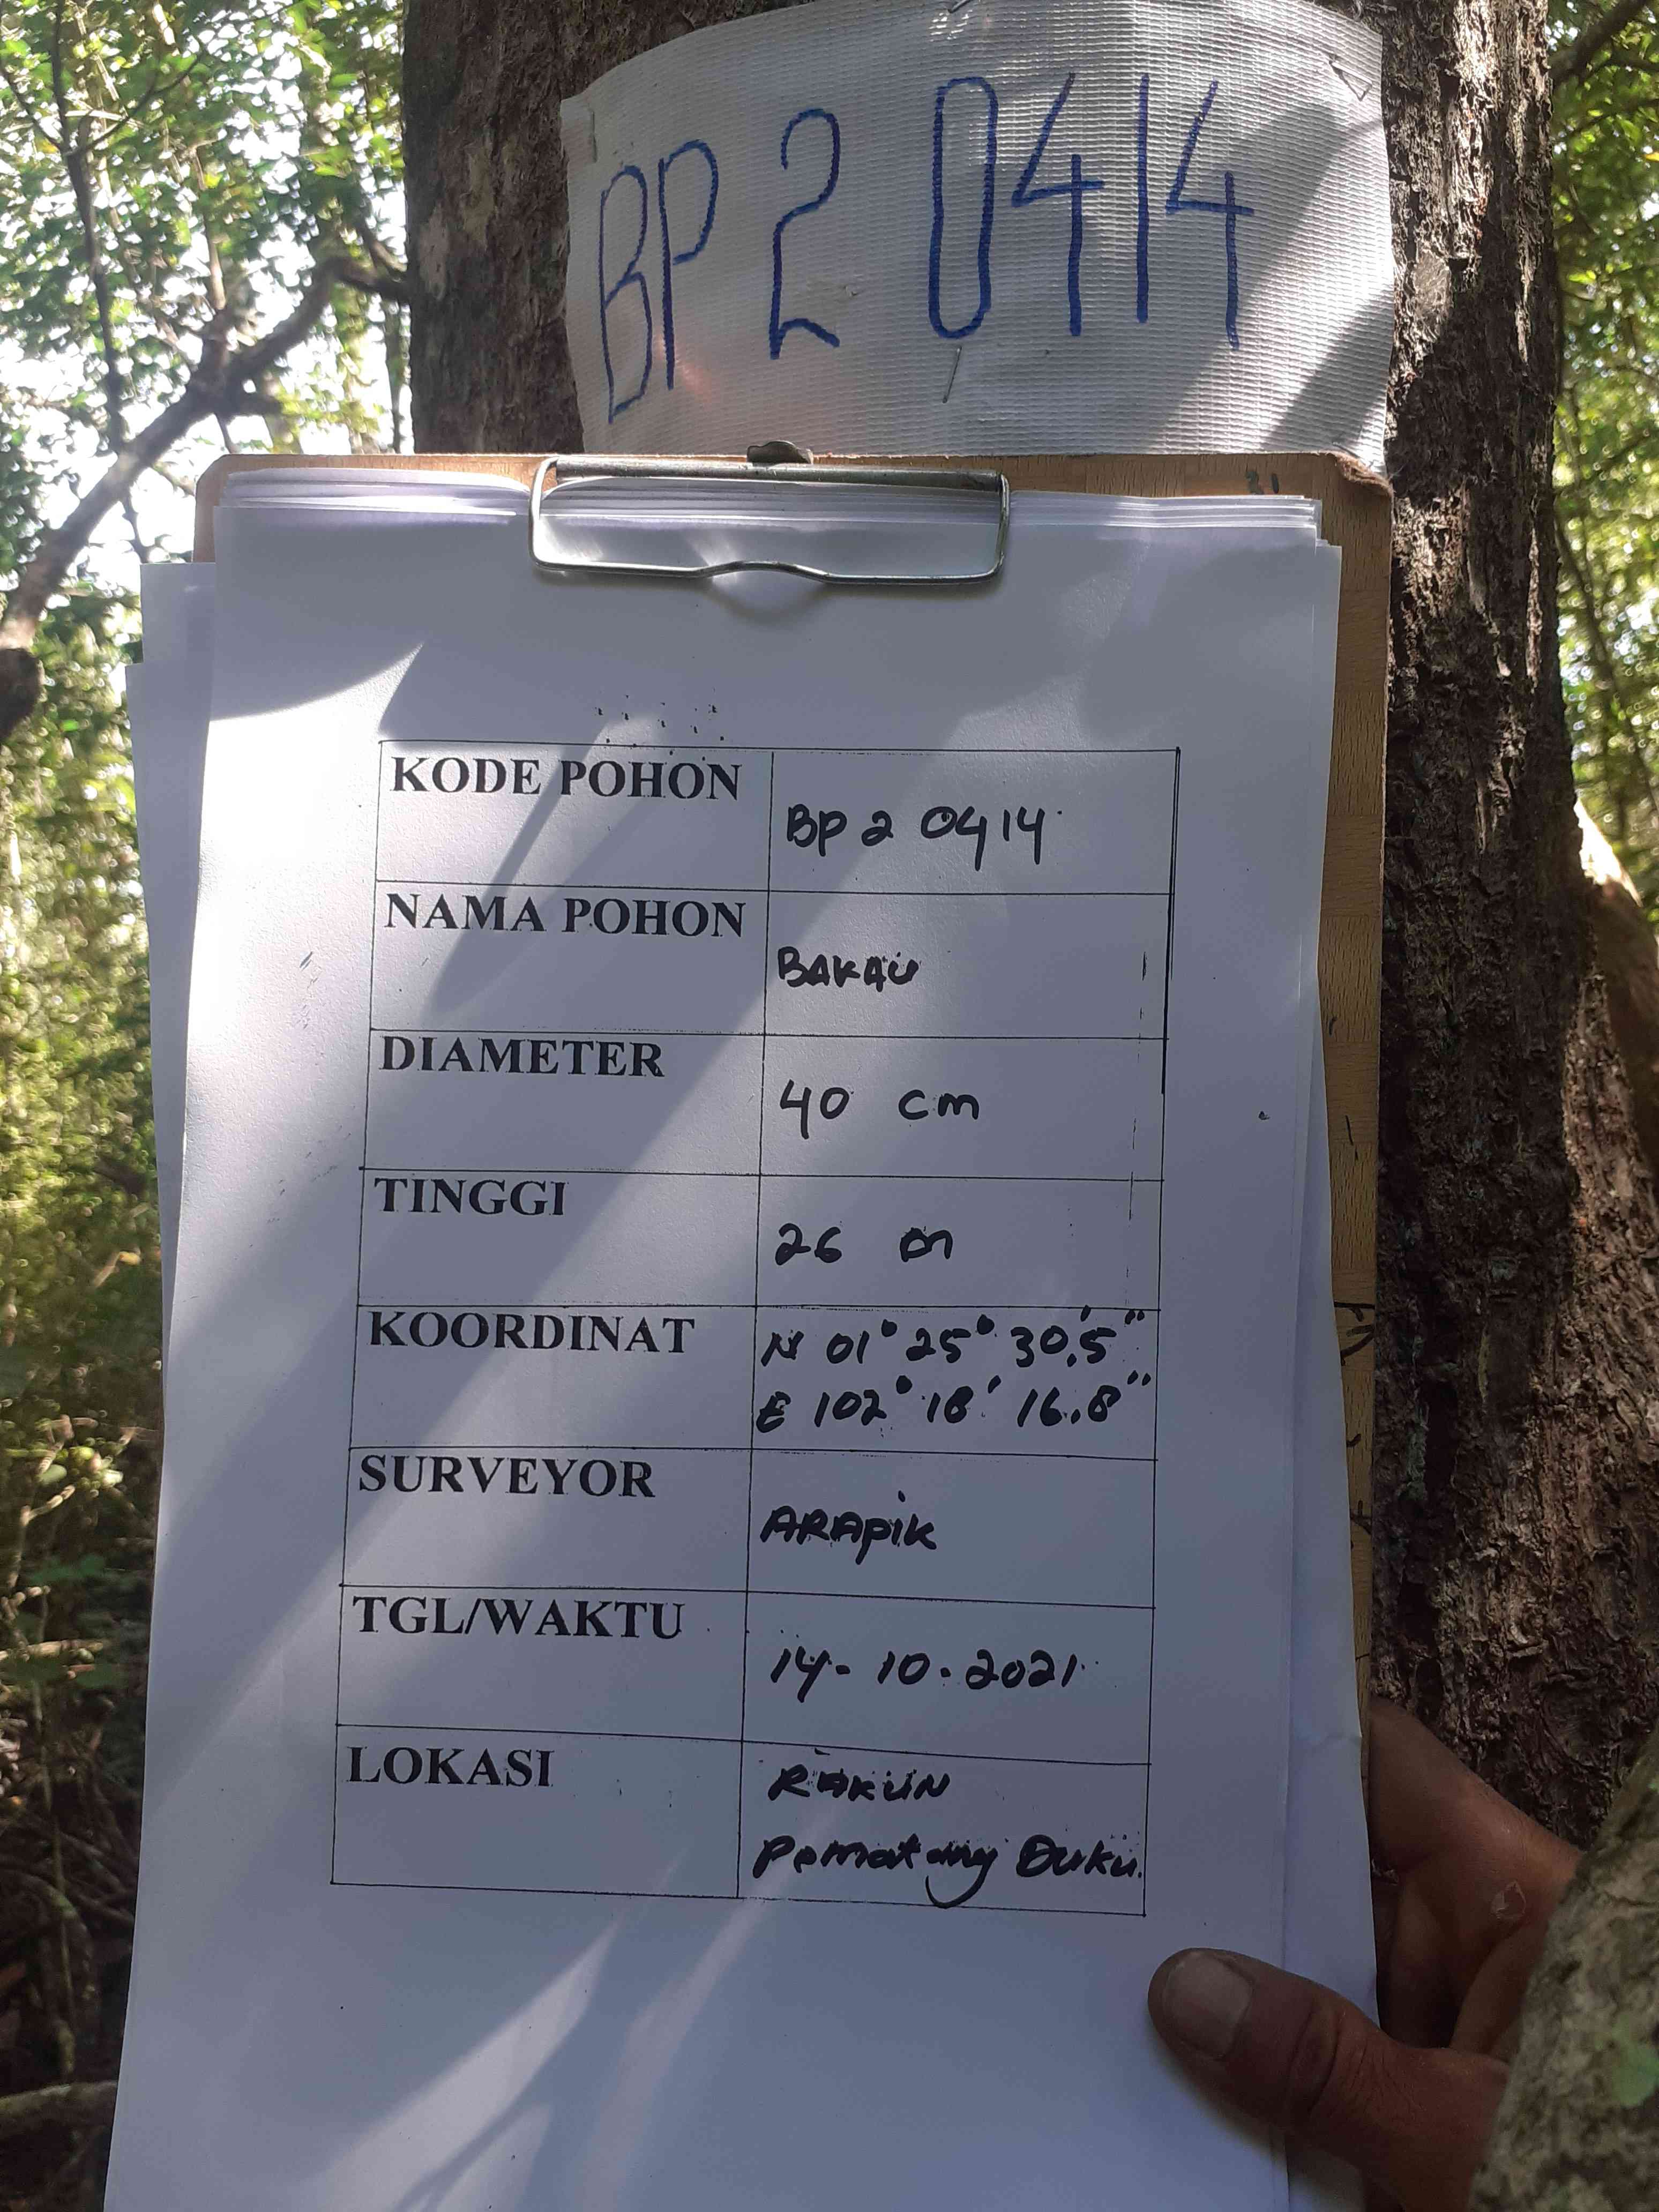 BP 2 0414
KODE POHON
BP 2 0414
NAMA POHON
BAKAU
DIAMETER
40 cm
TINGGI
26 m
KOORDINAT
N 01° 25° 30,5"
E 102° 18' 16.8"
SURVEYOR
ARApik
TGL/WAKTU
14-10-2021
LOKASI
RAKUN
Pematang Duku.